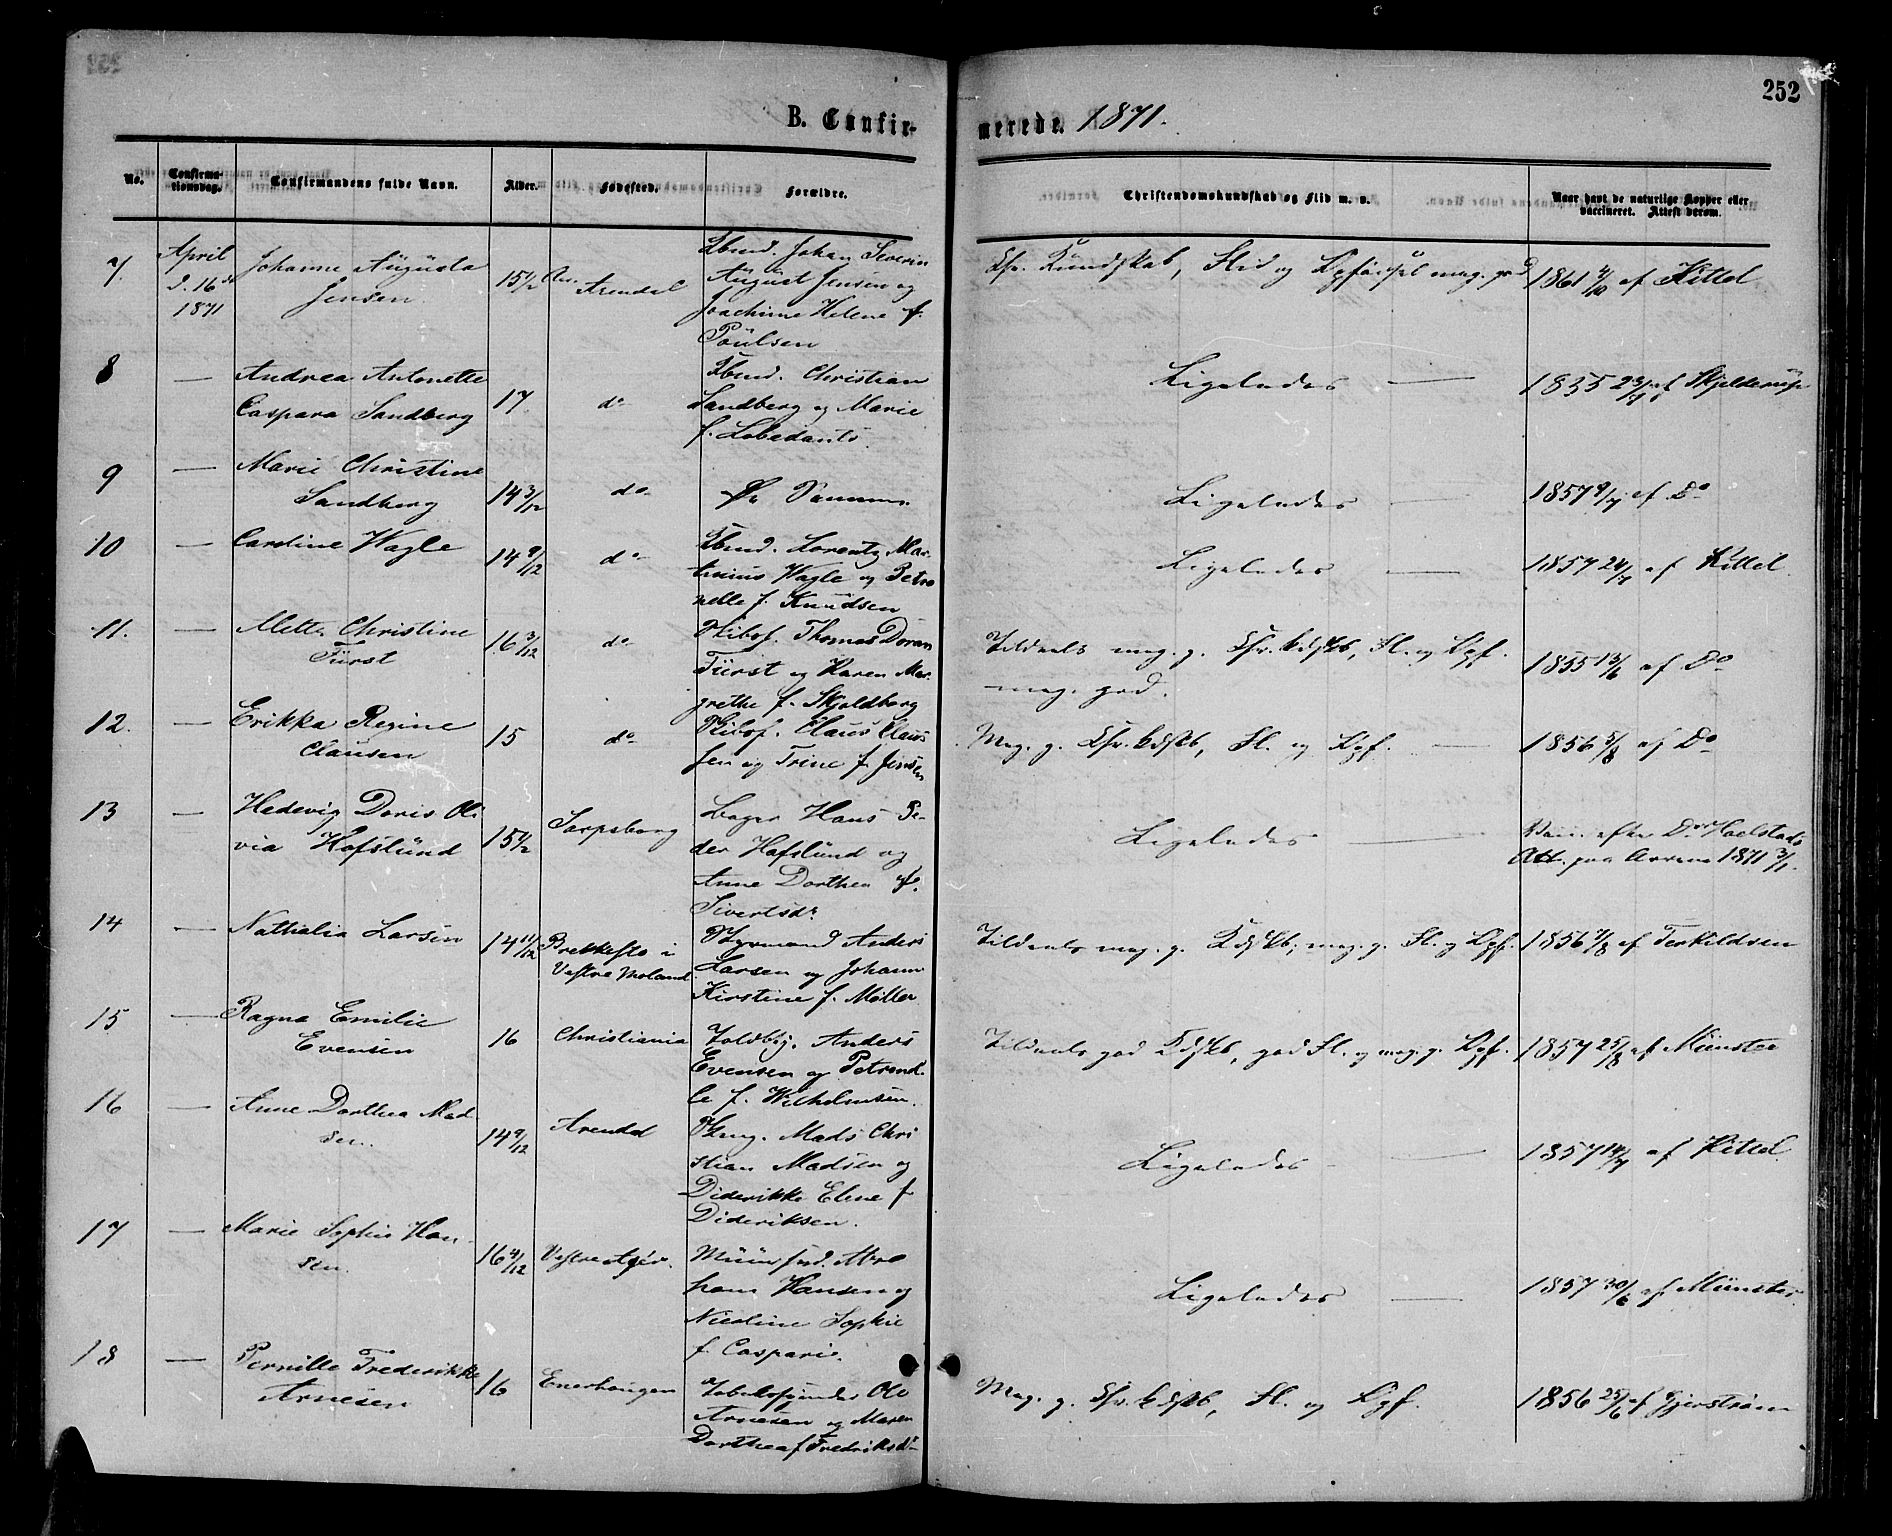 252
B. Confir-
merede. 1871.
No.
Confirma-
tionsdag.
Confirmandens fulde Navn.
Alder.
Fødested.
Forældre.
Christendomskundskab og Flid m. v.
Naar havt de naturlige Kopper eller
vaccineret. Attest derom.
7.
April
d. 16de
1871
Johanne Augusta
Jensen.
15 1/2
Arendal
Johan Severin
August Jensen og
Joachime Helene f.
Poulsen
Chr. Kundskab, Flid og Opførsel meg. god
1861 af Kittel
8
—
Andrea Antonette
Caspara Sandberg
17
do
Christian
Sandberg og Marie
f. Lobedants.
Ligeledes —
1855 af Skjelderup
9
—
Marie Christine
Sandberg
14 3/12
do
De Samme.
Ligeledes —
1857 9/7 af Do
10
—
Caroline Wagle
14 9/12
do
Lorentz Mar-
tinius Wagle og Petro
nelle f. Knudsen
Ligeledes —
1857 24/7 af Kittel.
11.
—
Mette Christine
Fürst
16 3/12
do
Thomas Doran
Fürst og Karen Mar-
grethe f. Skjoldborg
Tildeels meg. g. Chr. Kdskb, Fl. og Opf.
meg. god.
1855 13/6 af Do
12.
—
Erikka Regine
Clausen
15
do
Claus Claus
sen og Trine f. Jensen
Meg. g. Chr. Kdskb, Fl. og Opf. —
1856 5/8 af Do
13
—
Hedevig Doris Oli
via Hafslünd
15 1/2
Sarpsborg
Bager Hans Pe-
der Hafslünd og
Anne Dorthea f.
Sivertsdr
Ligeledes —
Vac. efter Dr Hoelstads
Att. paa Arrene 1871 3/1.
14
—
Nathalia Larsen
14 11/12
Brekkestø i
Vestre Moland
Styrmand Anders
Larsen og Johanne
Kirstine f. Møller
Tildeels meg. g. Kdskb, meg. g. Fl. og Opf.
1856 7/8 af Terkildsen
15
—
Ragna Emilie
Evensen
16
Christiania
Toldbtj. Anders
Evensen og Petronel-
le f. Wilhelmsen.
Tildeels god Kdskb, god Fl. og meg. g. Opf.
1857 25/8 af Münster
16
—
Anne Dorthea Mad
sen.
14 9/12
Arendal
Mads Chri
stian Madsen og
Diderikke Elene f.
Dideriksen.
Ligeledes —
1857 14/7 af Kittel
17
—
Marie Sophie Han-
sen.
16 4/12
Abra
ham Hansen og
Nicoline Sophie
f. Casparie.
Ligeledes —
1857 30/6 af Münster.
18
—
Pernille Frederikke
Arnesen
16
Enerhaugen
Ole
Arnesen og Maren
Dorthea f. Fredriksdr
Meg. g. Chr. Kdskb, Fl. og Opf.
1856 25/6 af Gjerstrøm